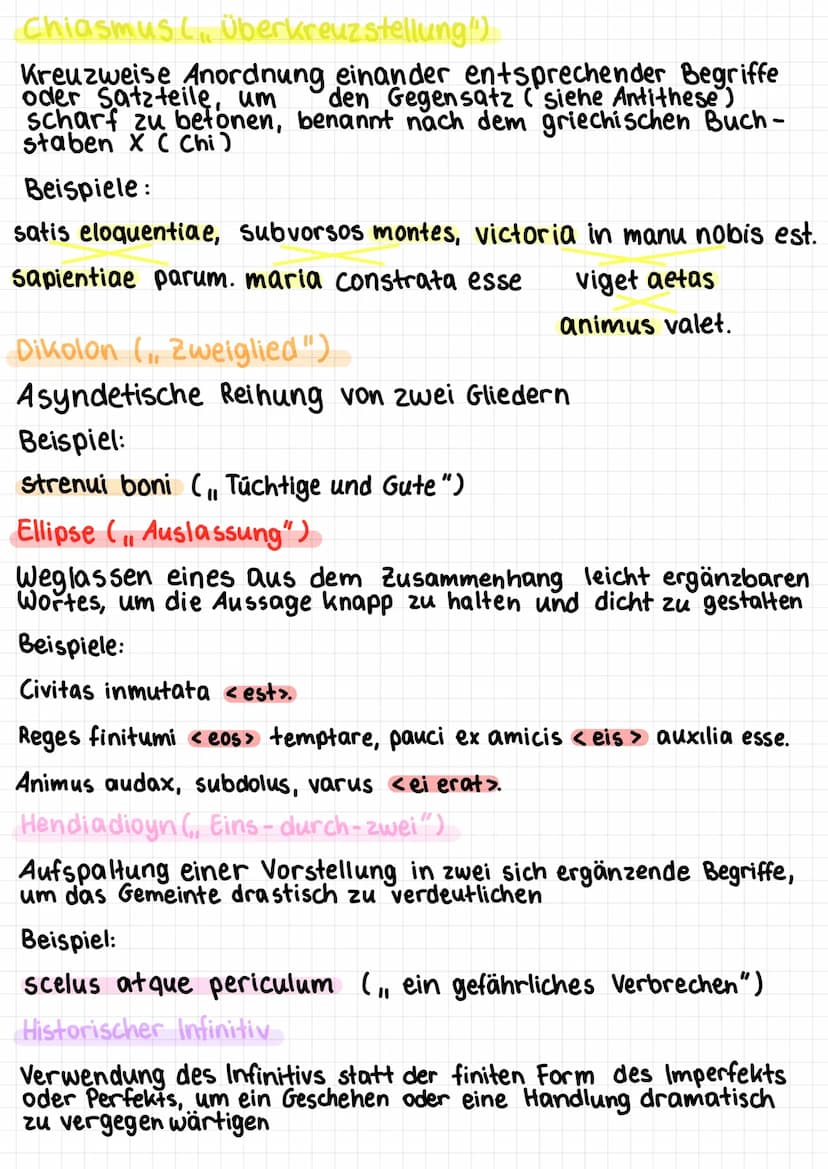 Chiasmus („Überkreuzstellung")
Kreuzweise Anordnung einander entsprechender Begriffe
oder Satzteile, um den Gegensatz (siehe Antithese)
scharf zu betonen, benannt nach dem griechischen Buch-
staben X (Chi)
Beispiele:
satis eloquentiae, subvorsos montes, victoria in manu nobis est.
sapientiae parum. maria constrata esse viget aetas
animus valet.
Dikolon („Zweiglied")
Asyndetische Reihung von zwei Gliedern
Beispiel:
strenui boni („Tüchtige und Gute")
Ellipse („Auslassung")
Weglassen eines aus dem Zusammenhang leicht ergänzbaren
Wortes, um die Aussage knapp zu halten und dicht zu gestalten
Beispiele:
Civitas inmutata <est>.
Reges finitumi <eos> temptare, pauci ex amicis <eis> auxilia esse.
Animus audax, subdolus, varus <ei erat>.
Hendiadioyn („Eins-durch-zwei")
Aufspaltung einer Vorstellung in zwei sich ergänzende Begriffe,
um das Gemeinte drastisch zu verdeutlichen
Beispiel:
scelus atque periculum („ein gefährliches Verbrechen")
Historischer Infinitiv
Verwendung des Infinitivs statt der finiten Form des Imperfekts
oder Perfekts, um ein Geschehen oder eine Handlung dramatisch
zu vergegenwärtigen